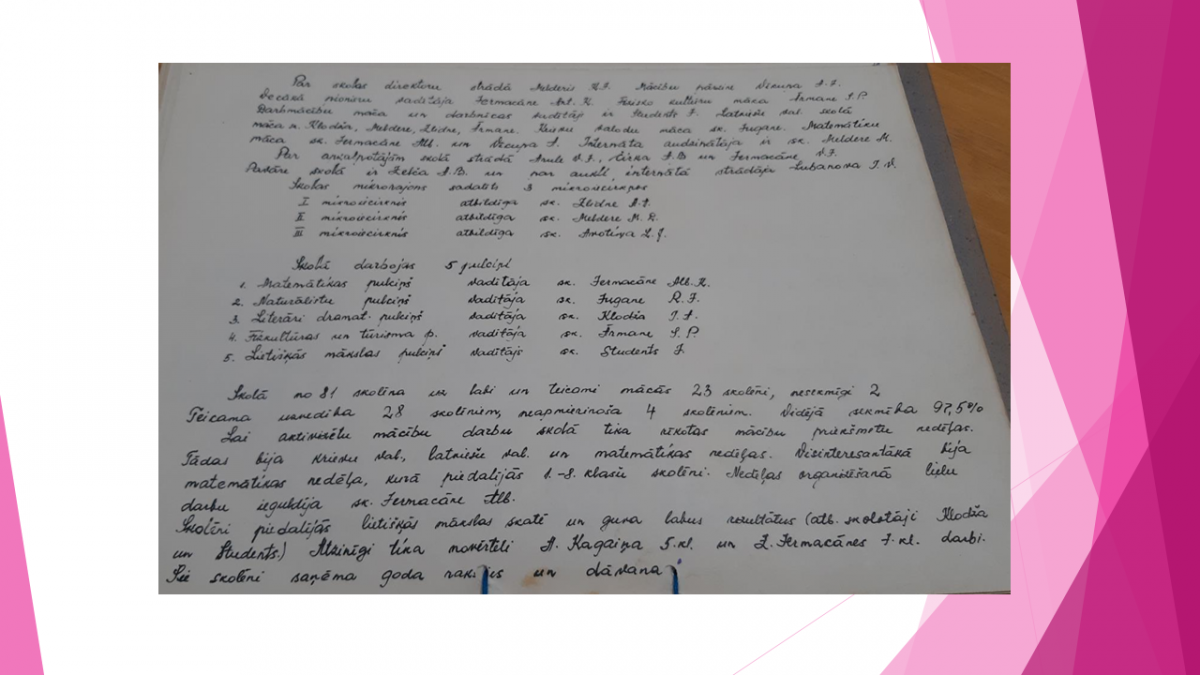 Par skolas direktoru strādā Melderis Mācību pārzine
Vecākā pionieru vadītāja Fermacāne Ant. K. Fizisko kultūru māca Īrmane I.P.
Darbmācību māca un darbnīcas vadītājs ir Students J. Latviešu val. skolā
māca n. Klodža, Meldere, Īrmane. Krievu valodu māca sk. Jugane. Matemātiku
māca sk. Fermacāne Alb. un Internāta audzinātāja ir sk. Meldere M.
Par apkalpotājām skolā strādā un Fermacāne V.J.
Pavāre skolā ir un par aukli internātā strādāja Lubanova I.V.
Skolas mikrorajons sadalīts 3 mikroiecirkņos
I mikroiecirknis atbildīga sk.
II mikroiecirknis atbildīga sk. Meldere M. D.
III mikroiecirknis atbildīga sk. Avotiņa L. J.
Skolā darbojas 5 pulciņi
1. Matemātikas pulciņš vadītāja sk. Fermacāne Alb. K.
2. Naturālistu pulciņš vadītāja sk. Jugane R. J.
3. Literāri dramat. pulciņš vadītāja sk. Klodža I. A.
4. Fizkultūras un tūrisma p. vadītāja sk. Īrmane I. P.
5. Lietišķās mākslas pulciņš vadītājs sk. Students J.
Skolā no 81 skolēna uz labi un teicami mācās 23 skolēni, nesekmīgi 2
Teicama uzvedība 28 skolēniem, neapmierinoša 4 skolēniem. Vidējā sekmība 97,5%
Lai aktivizētu mācību darbu skolā tika rīkotas mācību priekšmetu nedēļas.
Tādas bija krievu val., latviešu val. un matemātikas nedēļas. Visinteresantākā bija
matemātikas nedēļa, kurā piedalījās 1.-8. klašu skolēni. Nedēļas organizēšanā lielu
darbu ieguldīja sk. Fermacāne Alb.
Skolēni piedalījās lietišķās mākslas skatē un guva labus rezultātus (atb. skolotāji Klodža
un Students.) Atzinīgi tika novērtēti A. Kagaiņa 5.kl. un Z. Fermacānes 7.kl. darbi.
Šie skolēni saņēma goda un dāvana